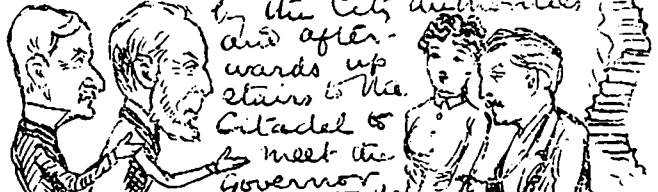 by the City authorities
and after-
wards up
stairs to the
Citadel to
meet the
Governor